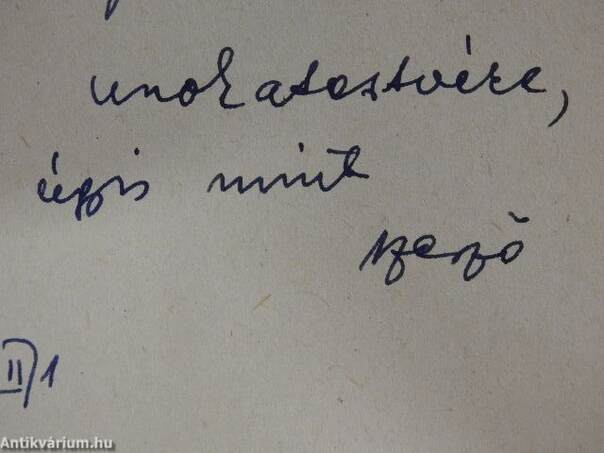 unokatestvére,
úgyis mint
szerző
II/1
Antikvárium.hu